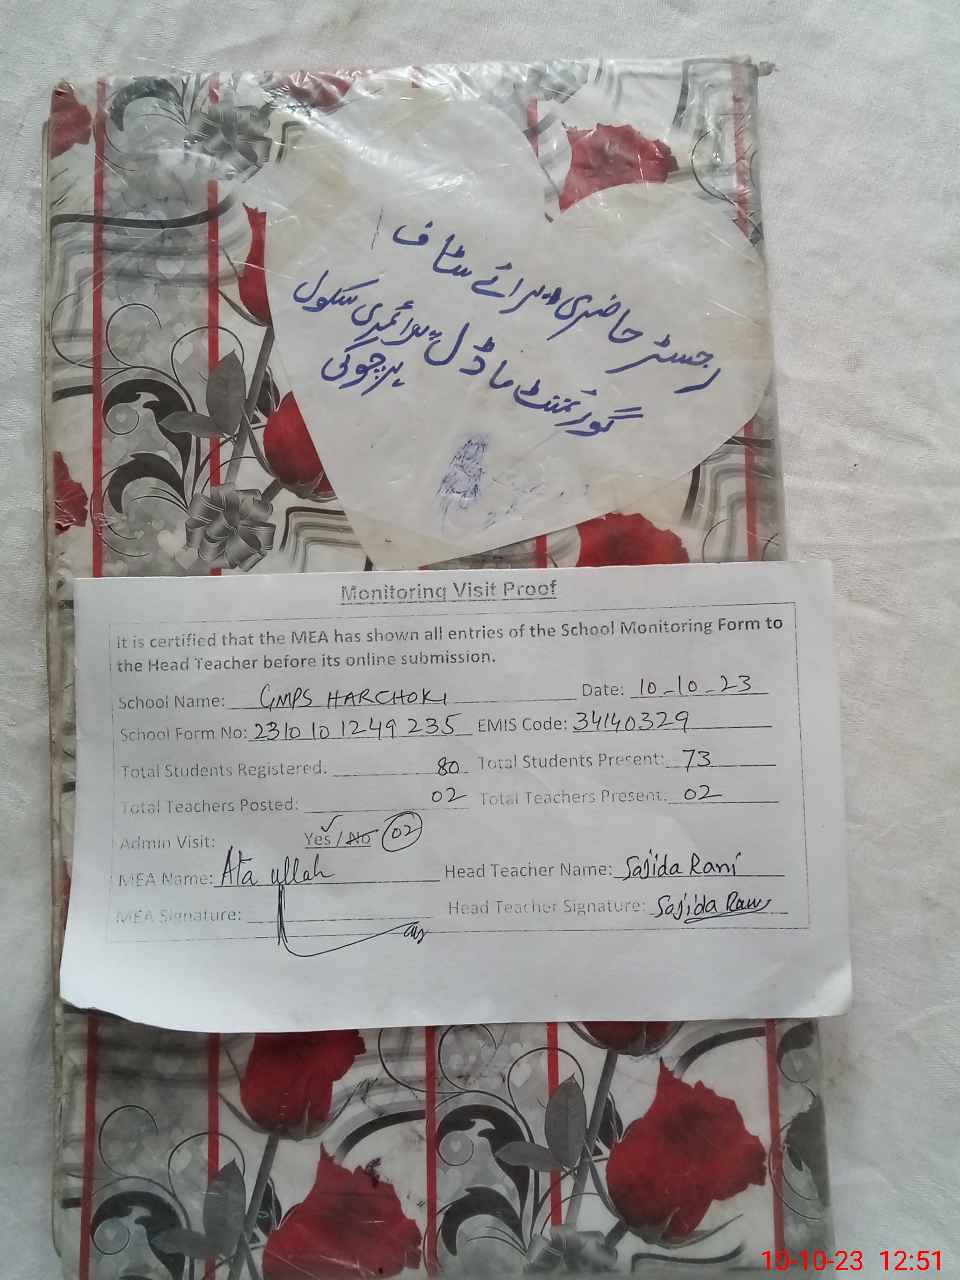 رجسٹر حاضری برائے سٹاف
گورنمنٹ ماڈل پرائمری سکول
ہرچوکی
Monitoring Visit Proof
It is certified that the MEA has shown all entries of the School Monitoring Form to
the Head Teacher before its online submission.
School Name: GMPS HARCHOKI Date: 10-10-23
School Form No: 2310101249235 EMIS Code: 34140329
Total Students Registered: 80 Total Students Present: 73
Total Teachers Posted: 02 Total Teachers Present: 02
Admin Visit: Yes / No 02
MEA Name: Ata ullah Head Teacher Name: Sajida Rani
MEA Signature: Head Teacher Signature: Sajida Rani
10-10-23 12:51